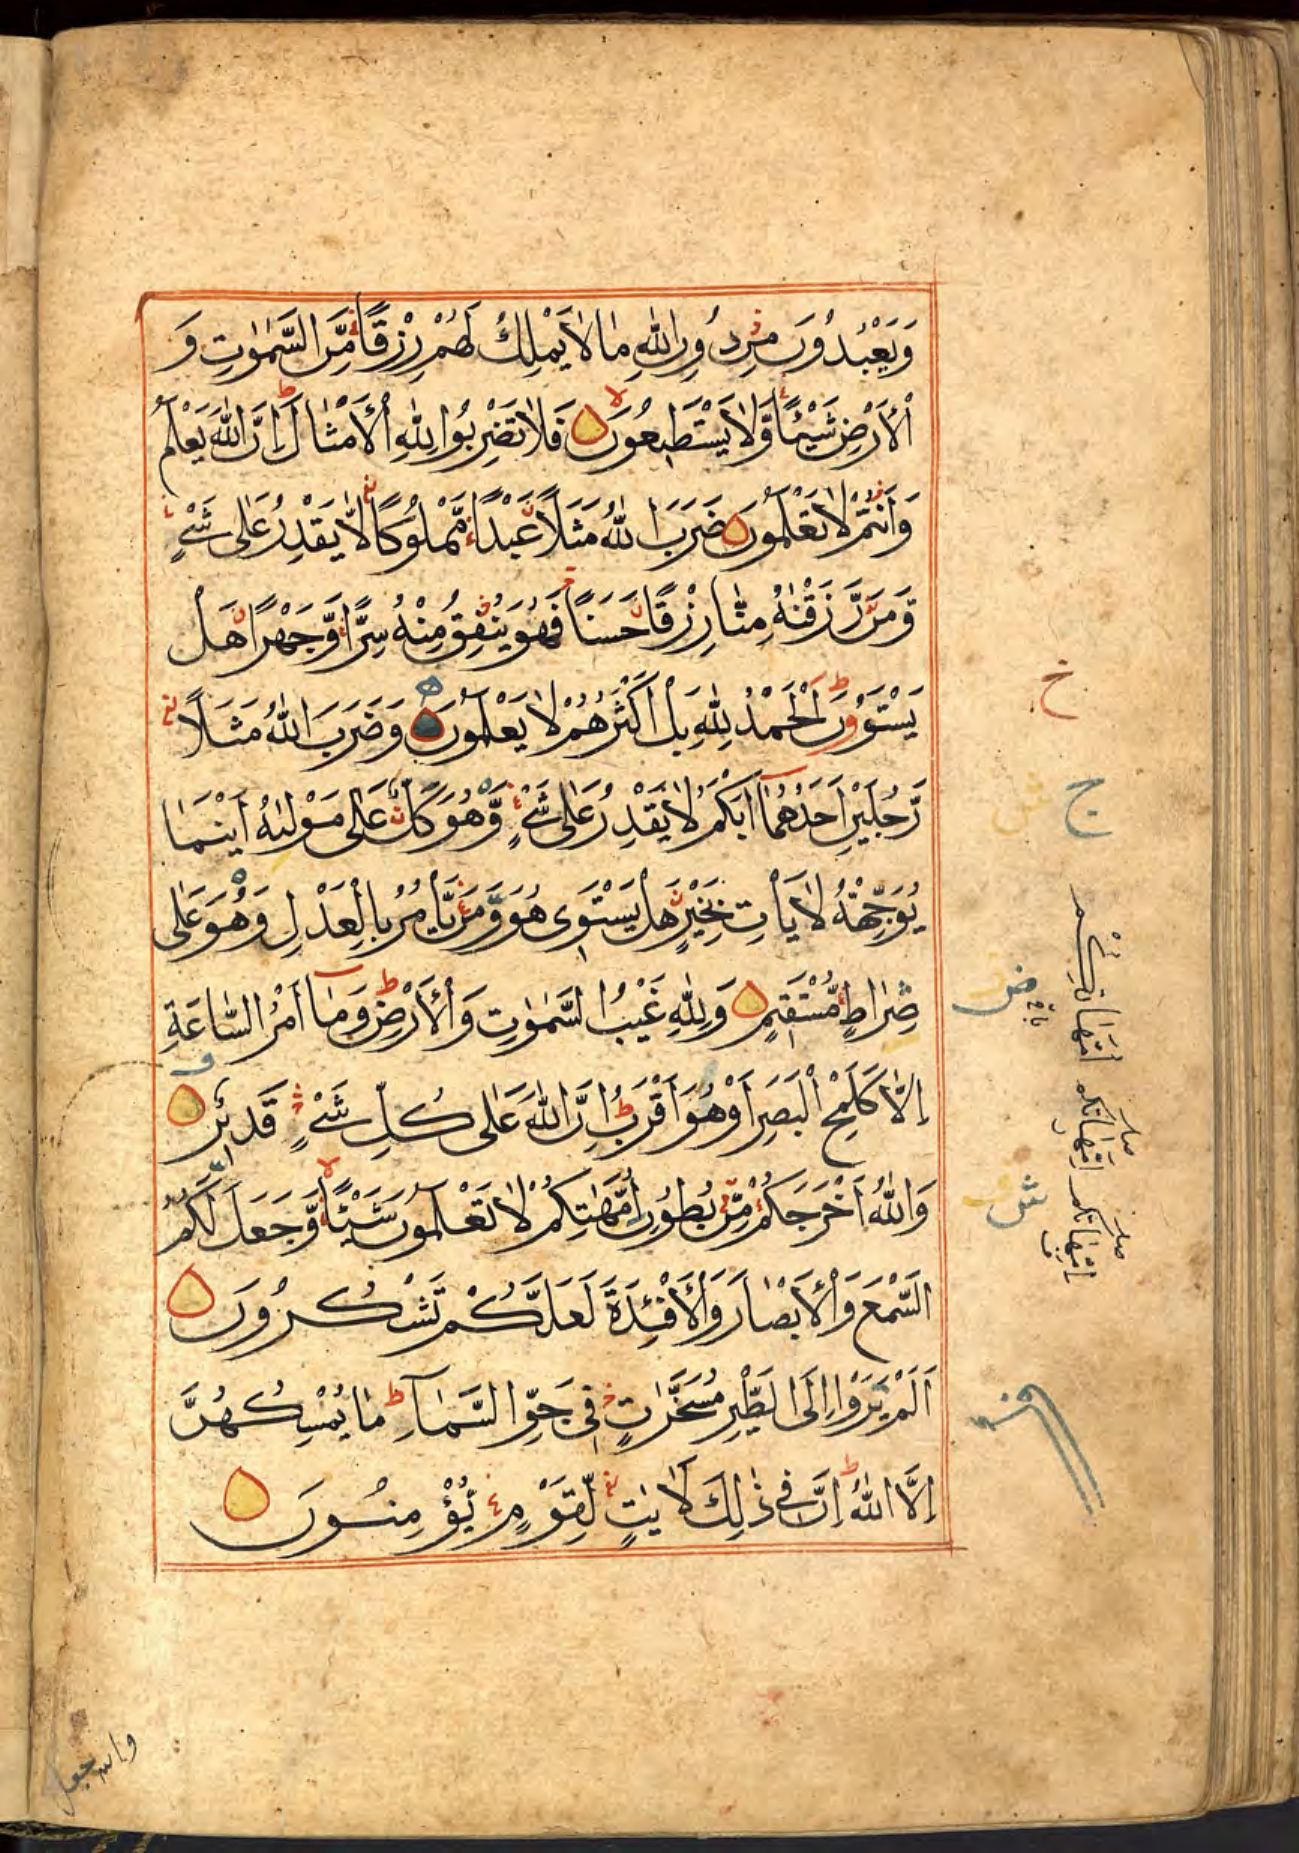 وَيَعْبُدُونَ مِنْ دُونِ اللّٰهِ مَا لَا يَمْلِكُ لَهُمْ رِزْقًا مِّنَ السَّمٰوٰتِ وَ
الْأَرْضِ شَيْئًا وَّلَا يَسْتَطِيعُونَ فَلَا تَضْرِبُوا لِلّٰهِ الْأَمْثَالَ إِنَّ اللّٰهَ يَعْلَمُ
وَأَنْتُمْ لَا تَعْلَمُونَ ضَرَبَ اللّٰهُ مَثَلًا عَبْدًا مَّمْلُوكًا لَّا يَقْدِرُ عَلٰى شَيْءٍ
وَّمَنْ رَّزَقْنٰهُ مِنَّا رِزْقًا حَسَنًا فَهُوَ يُنْفِقُ مِنْهُ سِرًّا وَّجَهْرًا هَلْ
يَسْتَوُونَ الْحَمْدُ لِلّٰهِ بَلْ أَكْثَرُهُمْ لَا يَعْلَمُونَ وَضَرَبَ اللّٰهُ مَثَلًا
رَّجُلَيْنِ أَحَدُهُمَا أَبْكَمُ لَا يَقْدِرُ عَلٰى شَيْءٍ وَّهُوَ كَلٌّ عَلٰى مَوْلٰىهُ أَيْنَمَا
يُوَجِّهْهُ لَا يَأْتِ بِخَيْرٍ هَلْ يَسْتَوِى هُوَ وَمَنْ يَّأْمُرُ بِالْعَدْلِ وَهُوَ عَلٰى
صِرَاطٍ مُّسْتَقِيمٍ وَلِلّٰهِ غَيْبُ السَّمٰوٰتِ وَالْأَرْضِ وَمَا أَمْرُ السَّاعَةِ
إِلَّا كَلَمْحِ الْبَصَرِ أَوْ هُوَ أَقْرَبُ إِنَّ اللّٰهَ عَلٰى كُلِّ شَيْءٍ قَدِيرٌ
وَاللّٰهُ أَخْرَجَكُمْ مِّنْ بُطُونِ أُمَّهٰتِكُمْ لَا تَعْلَمُونَ شَيْئًا وَّجَعَلَ لَكُمُ
السَّمْعَ وَالْأَبْصَارَ وَالْأَفْئِدَةَ لَعَلَّكُمْ تَشْكُرُونَ
أَلَمْ يَرَوْا إِلَى الطَّيْرِ مُسَخَّرٰتٍ فِى جَوِّ السَّمَآءِ مَا يُمْسِكُهُنَّ
إِلَّا اللّٰهُ إِنَّ فِى ذٰلِكَ لَاٰيٰتٍ لِّقَوْمٍ يُّؤْمِنُونَ
خ
ج
ض
ش
والله جعل